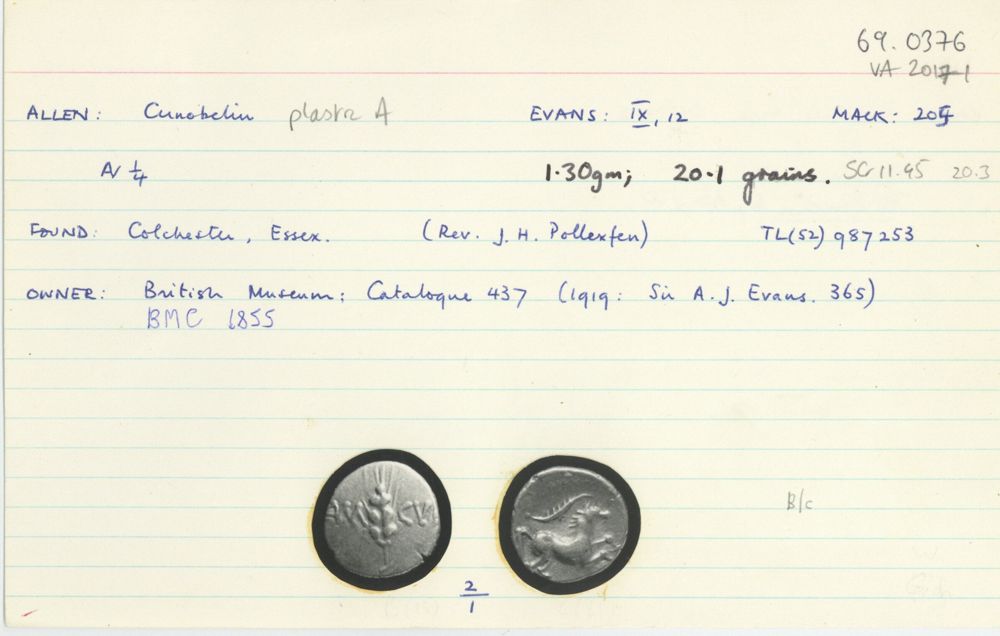 69.0376
VA 2017-1
ALLEN: Cunobelin plastic A EVANS: IX, 12 MACK: 205
AV 1/4 1.30gm; 20.1 grains. SCr 11.45 20.3
FOUND: Colchester, Essex. (Rev. J. H. Pollexfen) TL(52) 987253
OWNER: British Museum: Catalogue 437 (1919: Sir A. J. Evans. 365)
BMC 1855
CUN
B/c
2/1